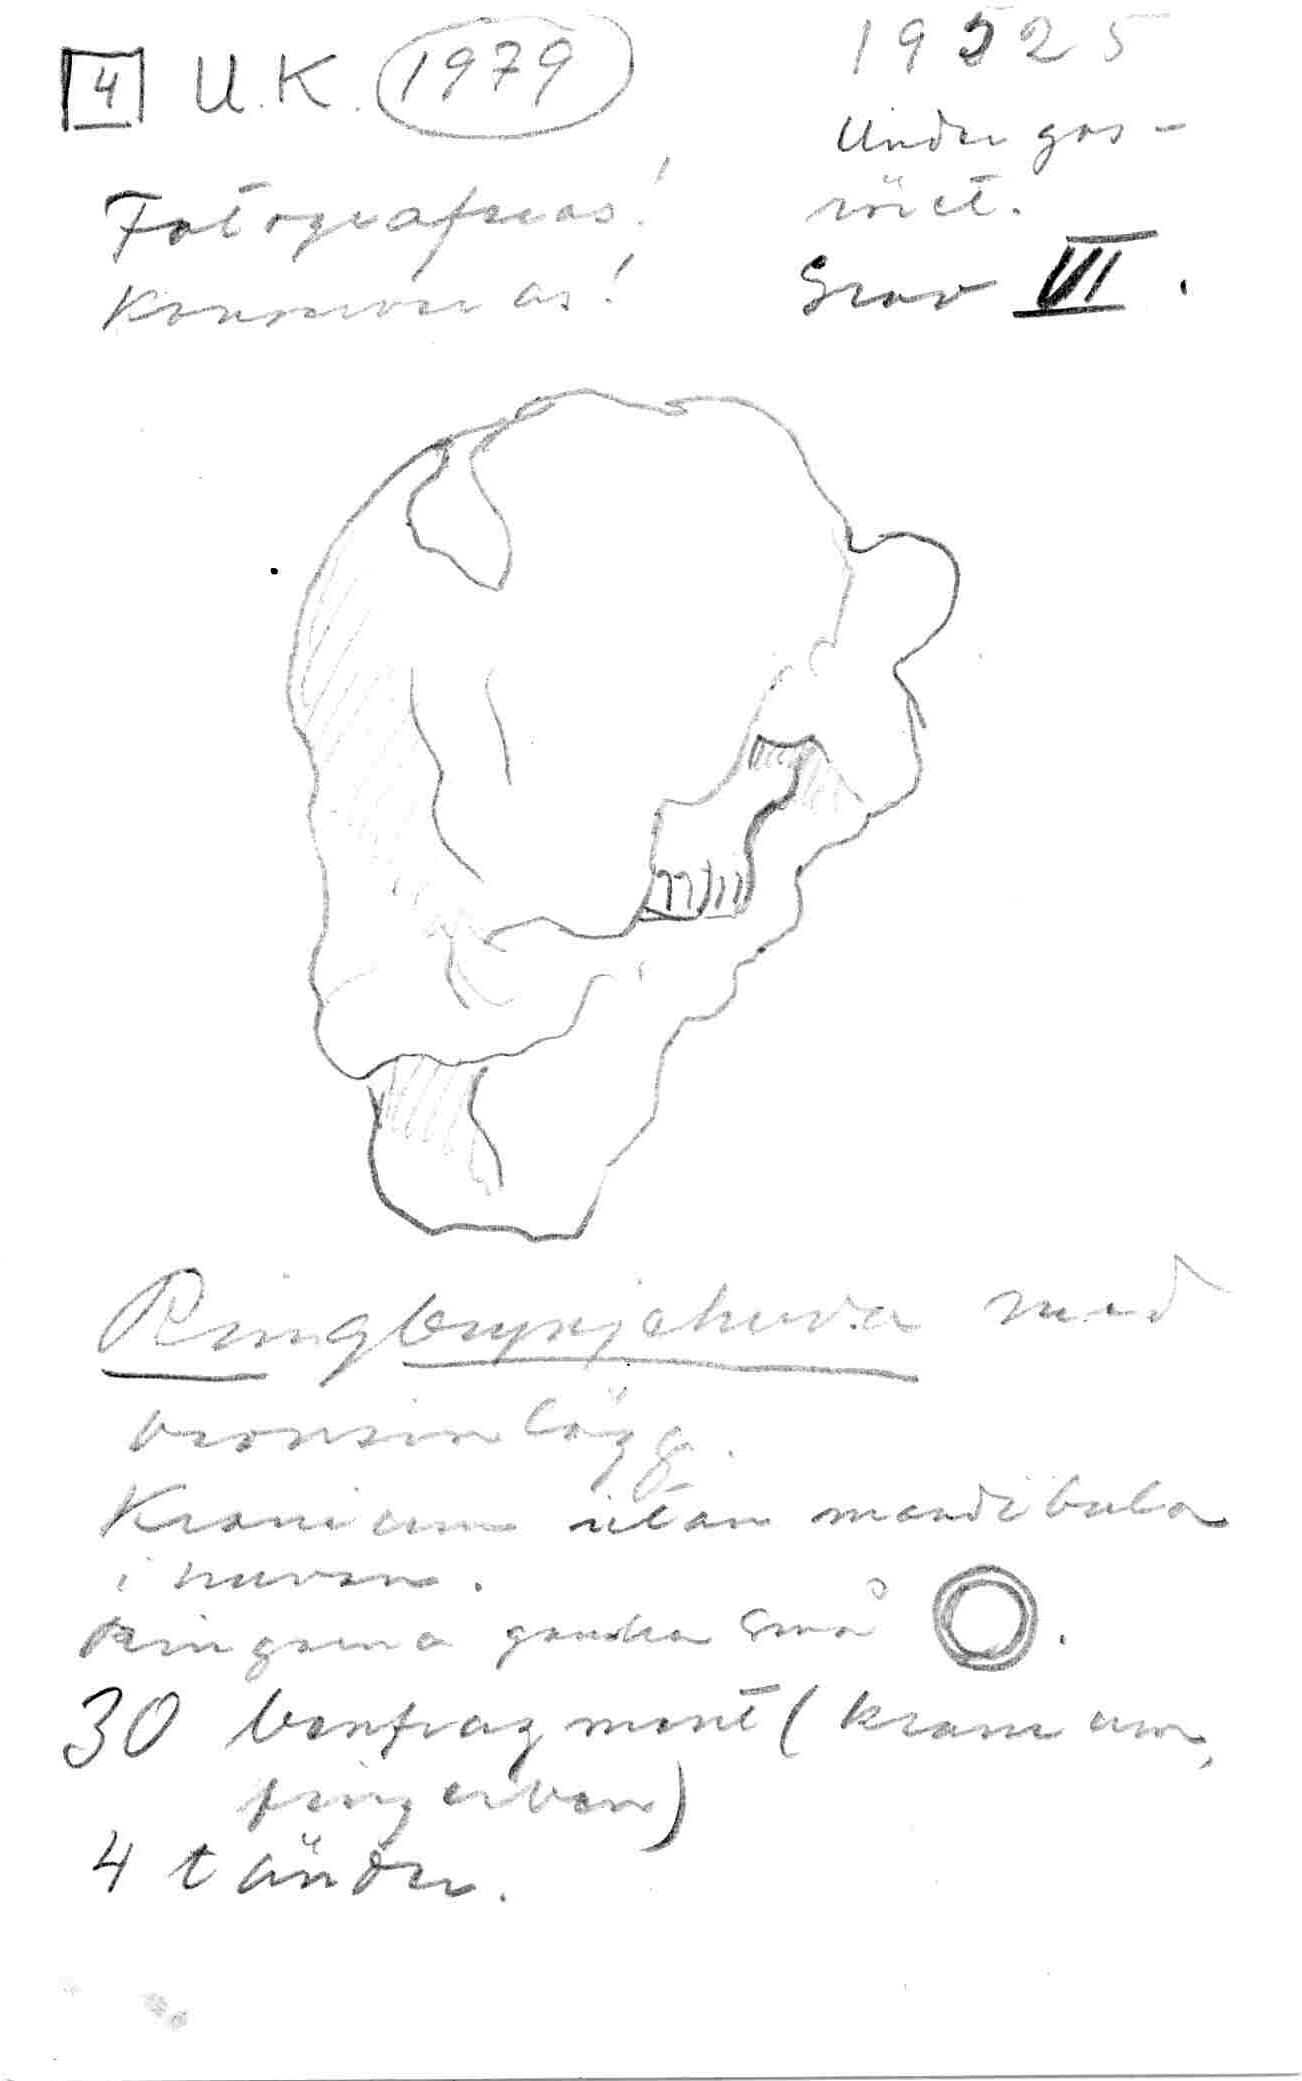 4 U.K. 1979
19525
Under gas-
röret.
Grav VI.
Fotograferas!
Konserveras!
Ringbrynjehuva med
bronsinlägg.
Kranium utan mandibula
i huvan.
Ringarna ganska små
30 benfragment (kranium,
fingerben)
4 tänder.